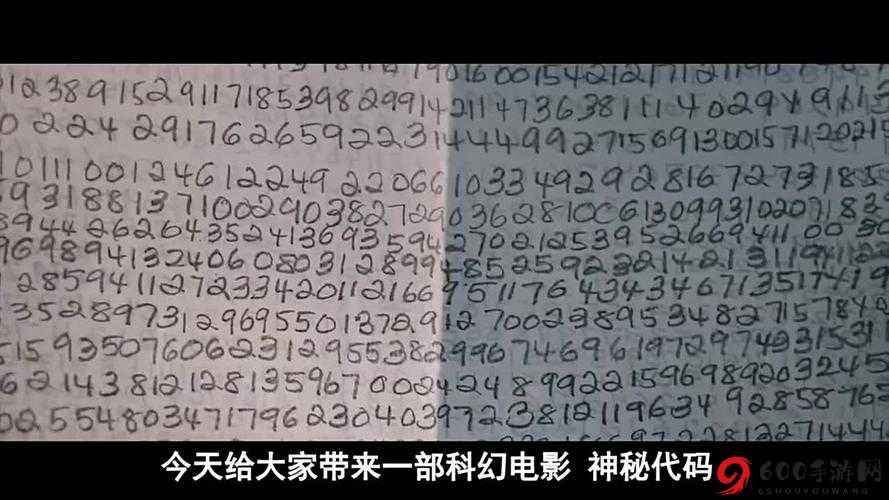 01238915291171853982991421147363811140294961
0 224 291762659223144499927156913001571202
101110012461224922066103349292816727318
93188137100290382729036281006130993102071
8944262643524136935942702125395266941100
9698941324060803128994852592322142131194112
28594112723342011216695117643434671351741
3528973129695501372912700238953482715784
51593507606231295538299674696197297493153
62143812128135967000242489922159698920324
025548034717962304039723812119634928587
今天给大家带来一部科幻电影 神秘代码
600手游网
6SHOUYOUWANG